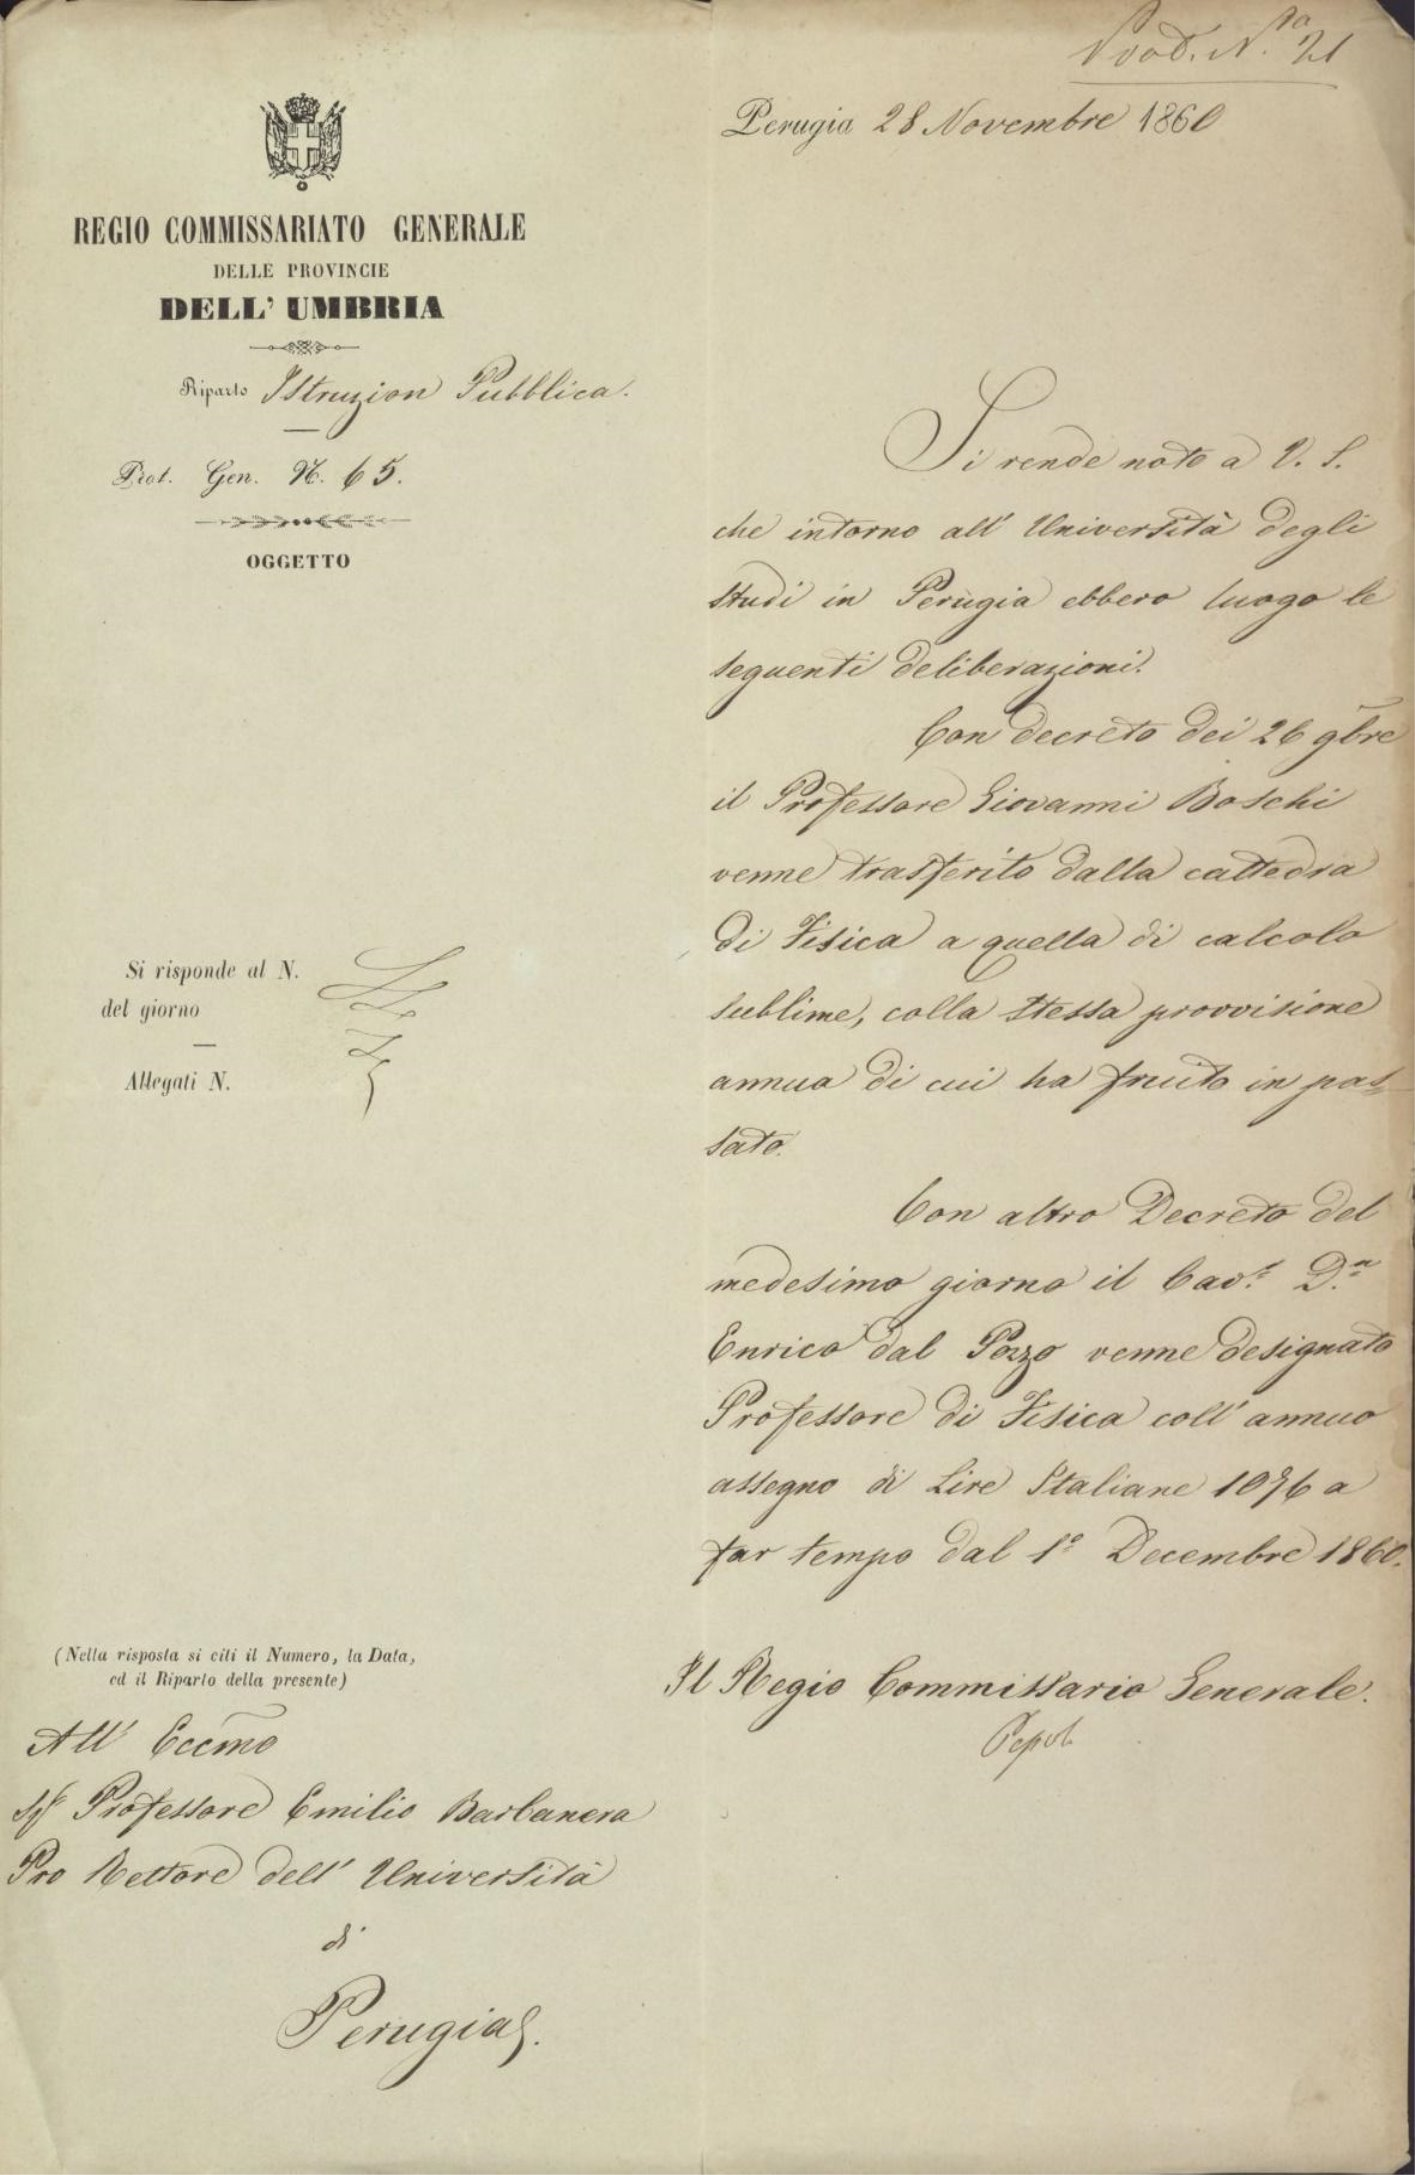 N.º 21
Perugia 28 Novembre 1860
REGIO COMMISSARIATO GENERALE
DELLE PROVINCIE
DELL' UMBRIA
Riparto Istruzion Pubblica.
Prot. Gen. N. 65.
OGGETTO
Si risponde al N.
del giorno
Allegati N.
(Nella risposta si citi il Numero, la Data,
ed il Riparto della presente)
All' Eccmo
Sigr Professore Emilio Barbanera
Pro Rettore dell' Università
di
Perugia
Si rende noto a V. S.
che intorno all' Università degli
studi in Perugia ebbero luogo le
seguenti deliberazioni.
Con decreto dei 26 9bre
il Professore Giovanni Boschi
venne trasferito dalla cattedra
di Fisica a quella di calcolo
sublime, colla stessa provvisione
annua di cui ha fruito in pas=
sato.
Con altro Decreto del
medesimo giorno il Cavre Dn
Enrico dal Pozzo venne designato
Professore di Fisica coll' annuo
assegno di Lire Italiane a
far tempo dal 1º Decembre 1860.
Il Regio Commissario Generale.
Pepoli